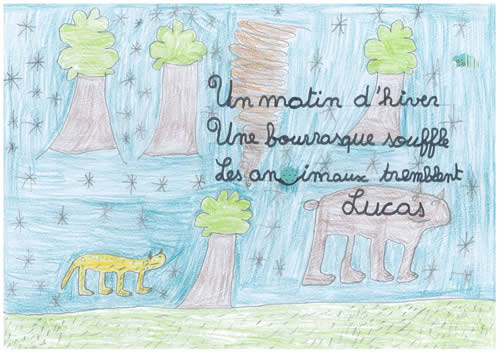 Un matin d'hiver
Une bourrasque souffle
Les animaux tremblent
Lucas